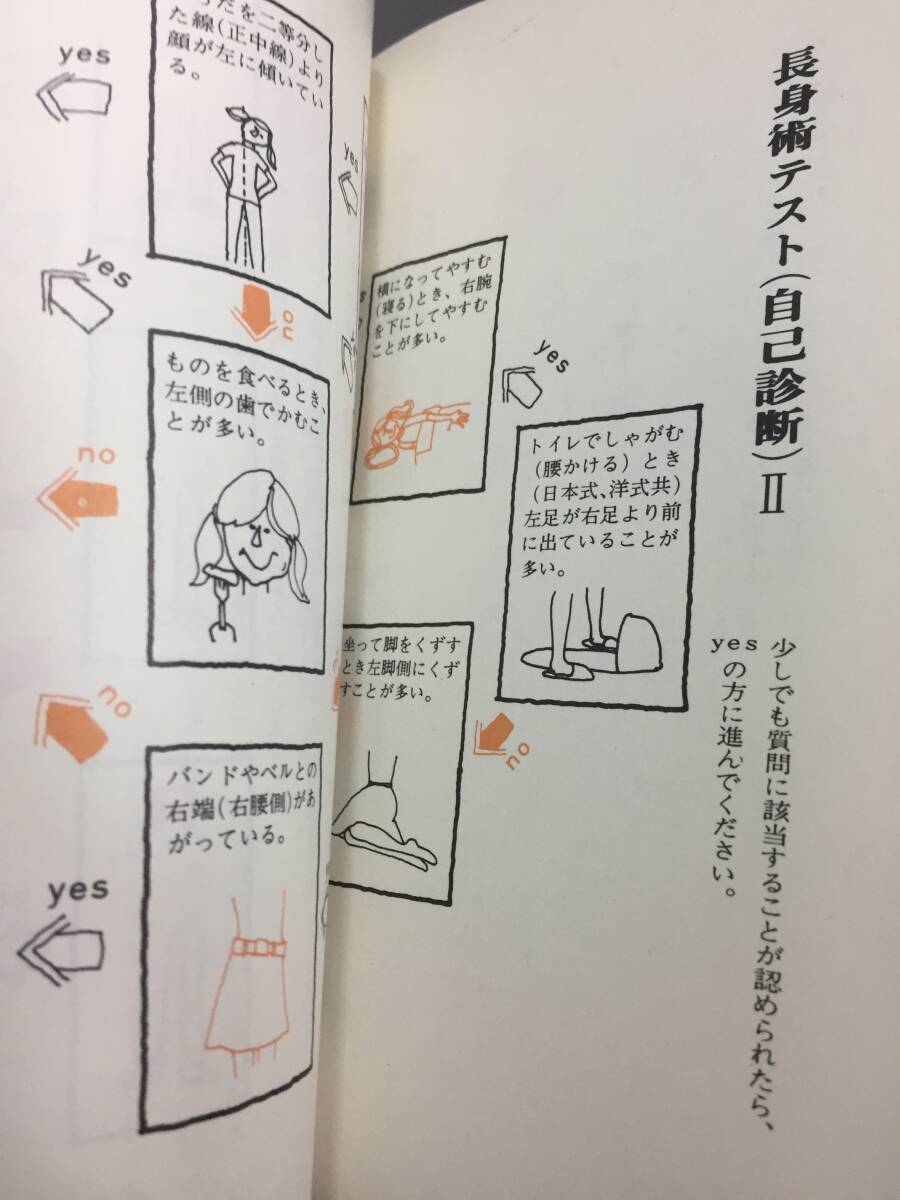 長身術テスト(自己診断)Ⅱ
少しでも質問に該当することが認められたら、
yesの方に進んでください。
トイレでしゃがむ
(腰かける)とき
(日本式、洋式共)
左足が右足より前
に出ていることが
多い。
yes
no
横になってやすむ
(寝る)とき、右腕
を下にしてやすむ
ことが多い。
坐って脚をくずす
とき左脚側にくず
すことが多い。
yes
だを二等分し
た線(正中線)より
顔が左に傾いてい
る。
yes
no
ものを食べるとき、
左側の歯でかむこ
とが多い。
yes
no
バンドやベルトの
右端(右腰側)があ
がっている。
no
yes